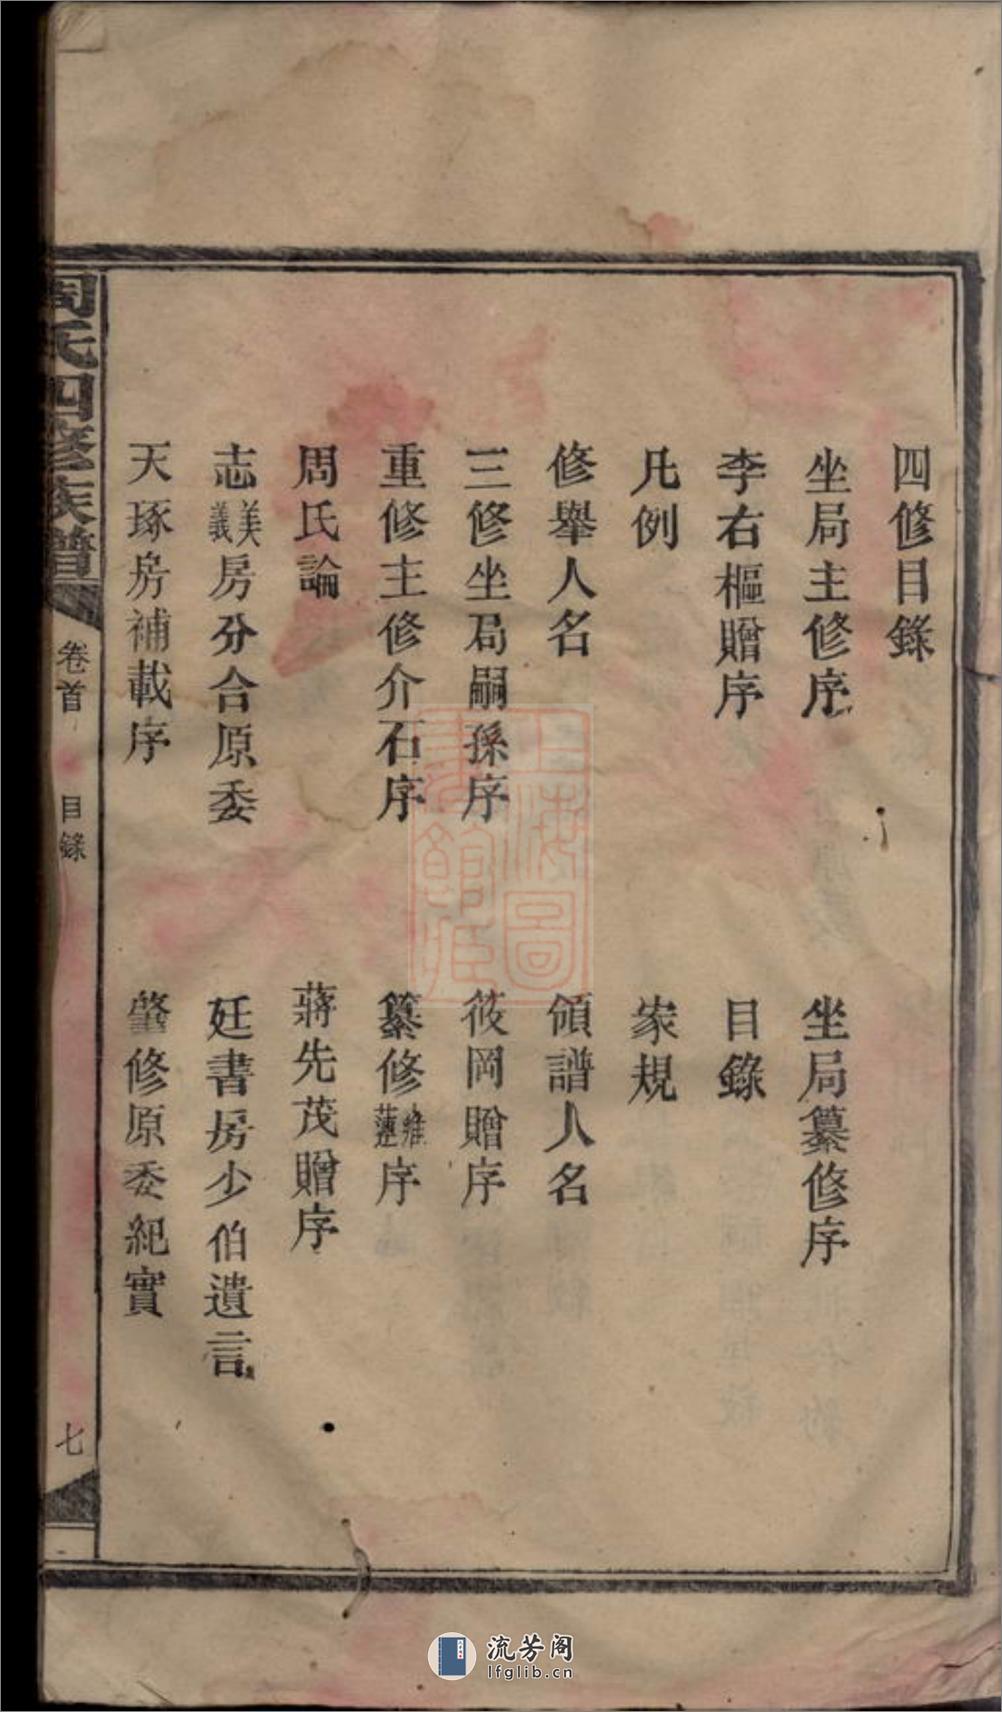 四修目錄
坐局主修序　坐局纂修序
李右樞贈序　目錄
凡例　家規
修舉人名　領譜人名
三修坐局嗣孫序　筱岡贈序
重修主修介石序　纂修維蓮序
周氏論　蔣先茂贈序
志美義房分合原委　廷書房少伯遺言
天琢房補載序　肇修原委紀實
周氏四修族譜　卷首　目錄　七
上海圖書館藏
流芳阁
lfglib.cn